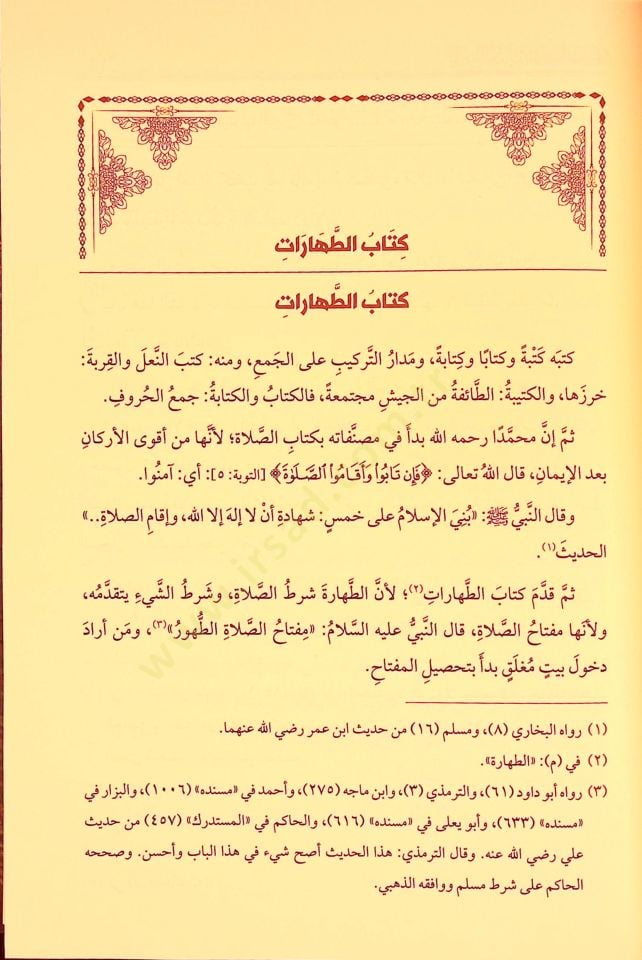 كِتَابُ الطَّهَارَاتِ
كتابُ الطَّهاراتِ
كتبَه كَتْبةً وكتابًا وكِتابةً، ومَدارُ التَّركيبِ على الجَمعِ، ومنه: كتبَ النَّعلَ والقِربةَ:
خرزَها، والكتيبةُ: الطَّائفةُ من الجيشِ مجتمعةً، فالكتابُ والكتابةُ: جمعُ الحُروفِ.
ثمَّ إنَّ محمَّدًا رحمه الله بدأَ في مصنَّفاته بكتابِ الصَّلاة؛ لأنَّها من أقوى الأركانِ
بعد الإيمانِ، قال اللهُ تعالى: ﴿فَإِن تَابُوا۟ وَأَقَامُوا۟ ٱلصَّلَوٰةَ﴾ [التوبة: ٥]: أي: آمنُوا.
وقال النَّبيُّ ﷺ: «بُنِيَ الإسلامُ على خمسٍ: شهادةِ أنْ لا إله إلا الله، وإقامِ الصلاةِ..»
الحديثَ(١).
ثمَّ قدَّمَ كتابَ الطَّهاراتِ(٢)؛ لأنَّ الطَّهارةَ شرطُ الصَّلاةِ، وشَرطُ الشَّيءِ يتقدَّمُه،
ولأنَّها مفتاحُ الصَّلاةِ، قال النَّبيُّ عليه السَّلامُ: «مِفتاحُ الصَّلاةِ الطُّهورُ»(٣)، ومَن أرادَ
دخولَ بيتٍ مُغلَقٍ بدأَ بتحصيلِ المفتاحِ.
(١) رواه البخاري (٨)، ومسلم (١٦) من حديث ابن عمر رضي الله عنهما.
(٢) في (م): «الطهارة».
(٣) رواه أبو داود (٦١)، والترمذي (٣)، وابن ماجه (٢٧٥)، وأحمد في «مسنده» (١٠٠٦)، والبزار في
«مسنده» (٦٣٣)، وأبو يعلى في «مسنده» (٦١٦)، والحاكم في «المستدرك» (٤٥٧) من حديث
علي رضي الله عنه. وقال الترمذي: هذا الحديث أصح شيء في هذا الباب وأحسن. وصححه
الحاكم على شرط مسلم ووافقه الذهبي.